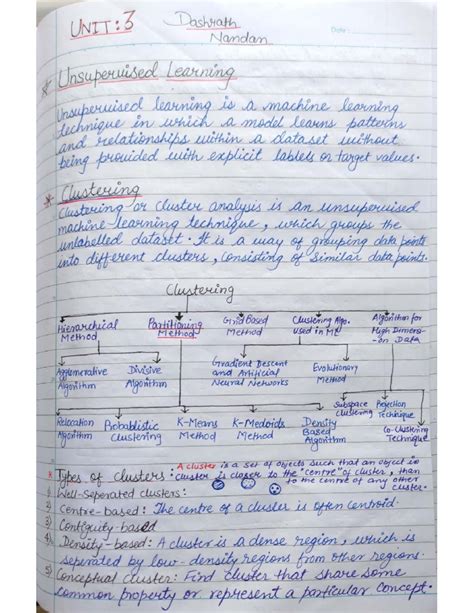 UNIT: 3
Dashrath
Nandan
Date:
* Unsupervised Learning
Unsupervised learning is a machine learning
technique in which a model learns patterns
and relationships within a dataset without
being provided with explicit lablels on target values.
* Clustering
Clustering or cluster analysis is an unsupervised
machine learning technique, which groups the
unlabelled dataset. It is a way of grouping data points
into different clusters, consisting of similar data points.
Clustering
Hierarchical Method
Partitioning Method
Grid Based Method
Clustering Algo. used in ML
Algorithm for High Dimension Data
Agglemerative Algorithm
Divisive Algorithm
Gradient Descent and Artificial Neural Networks
Evolutionary Method
Subspace Clustering
Projection Technique
Co-Clustering Technique
Relocation Algorithm
Probablistic Clustering
K-Means Method
K-Medoids Method
Density Based Algorithm
* Types of Clusters: A cluster is a set of objects such that an object in
cluster is closer to the "centre" of cluster, than
to the centre of any other
cluster.
1) Well-Seperated clusters:
2) Centre-based: The centre of a cluster is often centroid.
3) Contiguity-based
4) Density-based: A cluster is a dense region, which is
separated by low-density regions from other regions.
5) Conceptual cluster: Find cluster that share some
common property or represent a particular concept.